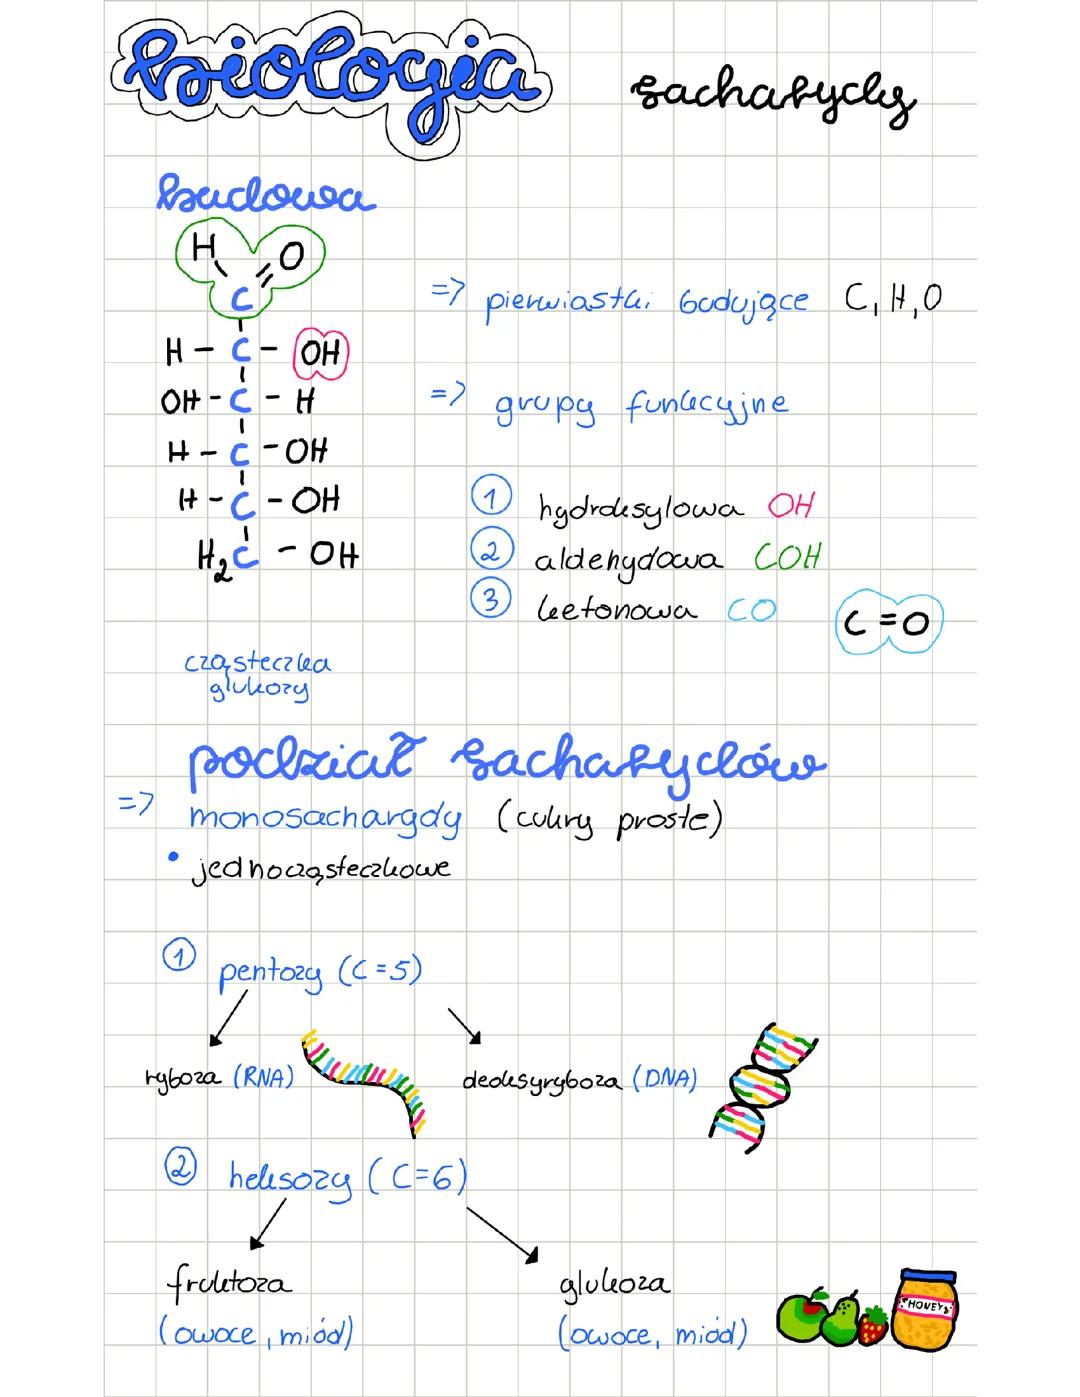 biologia
sacharydy
budowa
H
O
C
H - C - OH
OH - C - H
H - C - OH
H - C - OH
H₂C - OH
cząsteczka
glukozy
=> pierwiastki budujące C, H, O
=> grupy funkcyjne
1 hydroksylowa OH
2 aldehydowa COH
3 ketonowa CO
C=O
podział sacharydów
=> monosacharydy (cukry proste)
• jednocząsteczkowe
1 pentozy (C=5)
ryboza (RNA)
deoksyryboza (DNA)
2 heksozy (C=6)
fruktoza
(owoce, miód)
glukoza
(owoce, miód)
HONEY